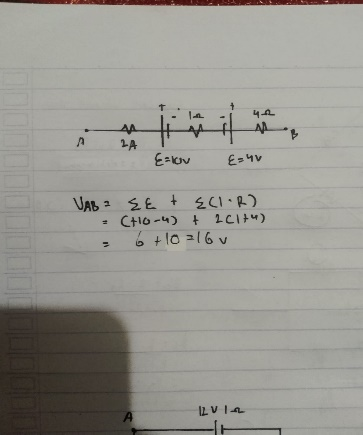 + - 1Ω - + 4Ω
A 2A B
Ɛ=10V Ɛ=4V
VAB = ΣƐ + Σ(I·R)
= (+10-4) + 2(1+4)
= 6 +10 =16 v
12V 1Ω
A